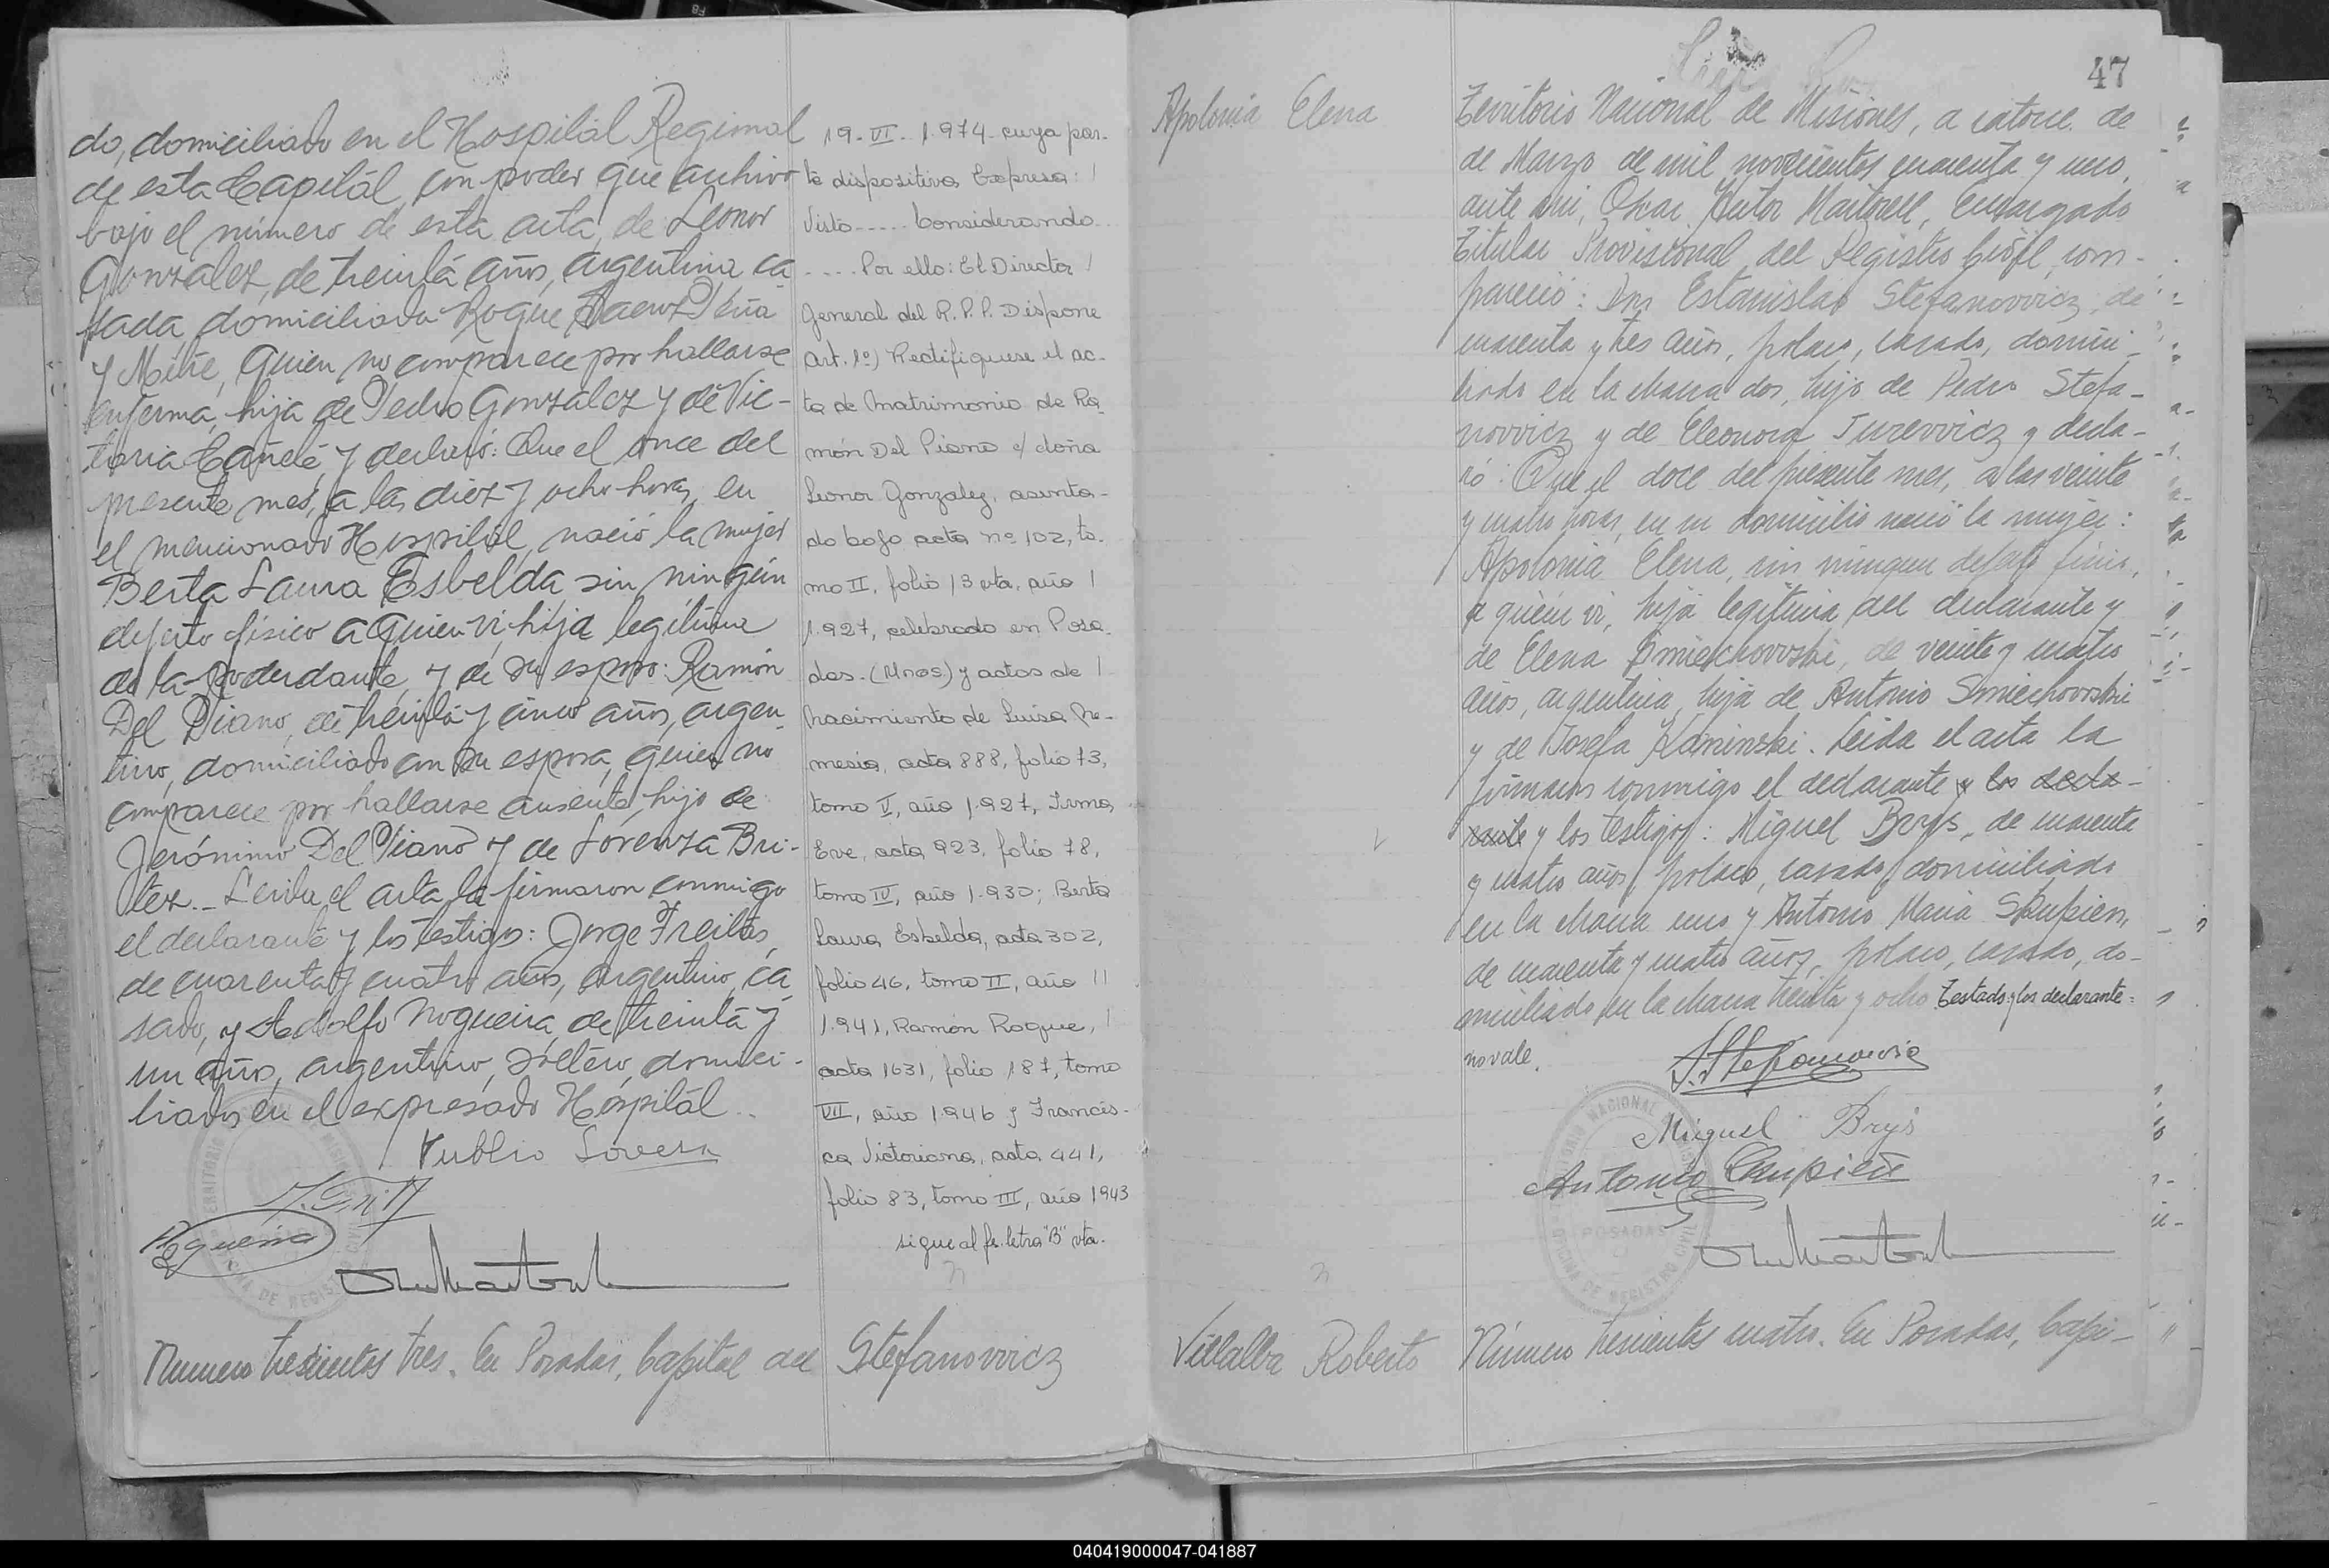 do, domiciliado en el Hospital Regional
de esta Capital, con poder que archivo
bajo el número de esta acta, de Leonor
Gonzalez, de treinta años, argentina, ca-
sada, domiciliada Roque Saenz Peña
y Mitre, quien no comparece por hallarse
enferma, hija de Pedro Gonzalez y de Vic-
toria Cañete, y declaró: Que el once del
presente mes, a las diez y ocho horas, en
el mencionado Hospital, nació la mujer
Berta Laura Esbelda, sin ningún
defecto físico a quien vi, hija legítima
de la poderdante, y de su esposo: Ramón
Del Piano, de treinta y cinco años, argen-
tino, domiciliado con su esposa, quien no
comparece por hallarse ausente, hijo de
Jerónimo Del Piano y de Lorenza Bri-
tez._ Leída el acta, la firmaron conmigo
el declarante y los testigos: Jorge Freitas,
de cuarenta y cuatro años, argentino, ca
sado, y Adolfo Nogueira, de treinta y
un años, argentino, soltero, domici-
liados en el expresado Hospital..
Publio Lovera
Número trescientos tres. En Posadas, Capital del
19-VI-1.974- cuya par-
te dispositiva Expresa: /
Visto ----- Considerando..
.... Por ello: El Director /
General del R.P.P. Dispone
Art. 1º) Rectifiquese el ac-
ta de Matrimonio de Ra-
món Del Piano c/ doña
Leonor Gonzalez, asenta-
do bajo acta nº 102, to-
mo II, folio 13 vta, año /
1.927, celebrado en Posa-
das.- (Mnes) y actas de /
Nacimiento de Luisa Ne-
mesia, acta 888, folio 73,
tomo V, año 1.927, Irma
Eve, acta 923, folio 78,
tomo IV, año 1.930; Berta
Laura Esbelda, acta 302,
folio 46, tomo II, año //
1.941, Ramón Roque, /
acta 1631, folio 187, tomo
VII, año 1.946 y Francis-
ca Victoriana, acta 441,
folio 83, tomo III, año 1943
sigue al fo. letra "B" vta.
Stefanovvicz
47
Apolonia Elena
Territorio Nacional de Misiones, a catorce de
de Marzo de mil novecientos cuarenta y uno,
ante mi, Oscar Hector Martorell, Encargado
Titular Provisional del Registro Civil, com-
pareció: Don Estanislao Stefanovvicz, de
cuarenta y tres años, polaco, casado, domici-
liado en la chacra dos, hijo de Pedro Stefa-
novvicz y de Eleonora Jurevvicz y decla-
ró: Que el doce del presente mes, a las veinte
y cuatro horas, en su domicilio nació la mujer:
Apolonia Elena, sin ningun defecto físico,
a quien vi, hija legítima del declarante y
de Elena Smiechovvski, de veinte y cuatro
años, argentina, hija de Antonio Smiechovvski
y de Josefa Kaminski. Leida el acta la
firmaron conmigo el declarante y los decla-
rante y los testigos: Miguel Brys, de cuarenta
y cuatro años, polaco, casado, domiciliado
en la chacra uno y Antonio Maria Skupien,
de cuarenta y cuatro años, polaco, casado, do-
miciliado en la chacra treinta y ocho Testado: y los declarante:
no vale.
S. Stefanowicz
Miguel Bryś
Antonio Skupień
POSADAS
Villalba Roberto
Número trescientos cuatro. En Posadas, Capi-
040419000047-041887